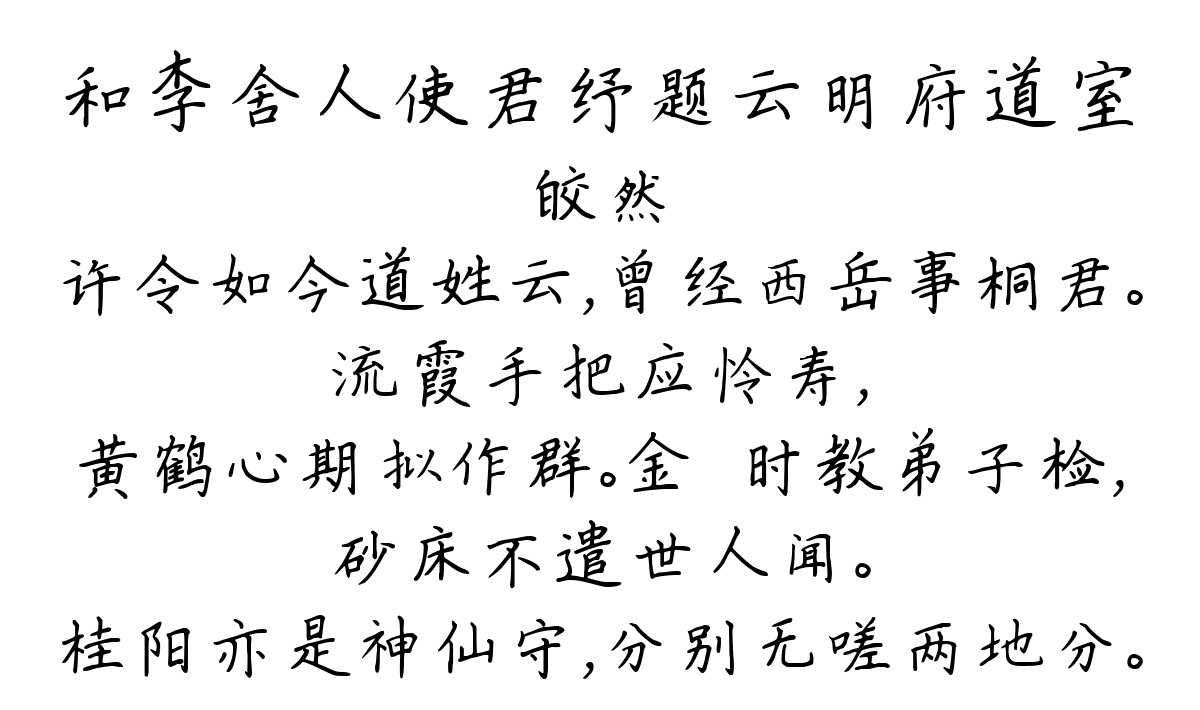 和李舍人使君纾题云明府道室
皎然
许令如今道姓云,曾经西岳事桐君。
流霞手把应怜寿,
黄鹤心期拟作群。金 时教弟子检,
砂床不遣世人闻。
桂阳亦是神仙守,分别无嗟两地分。